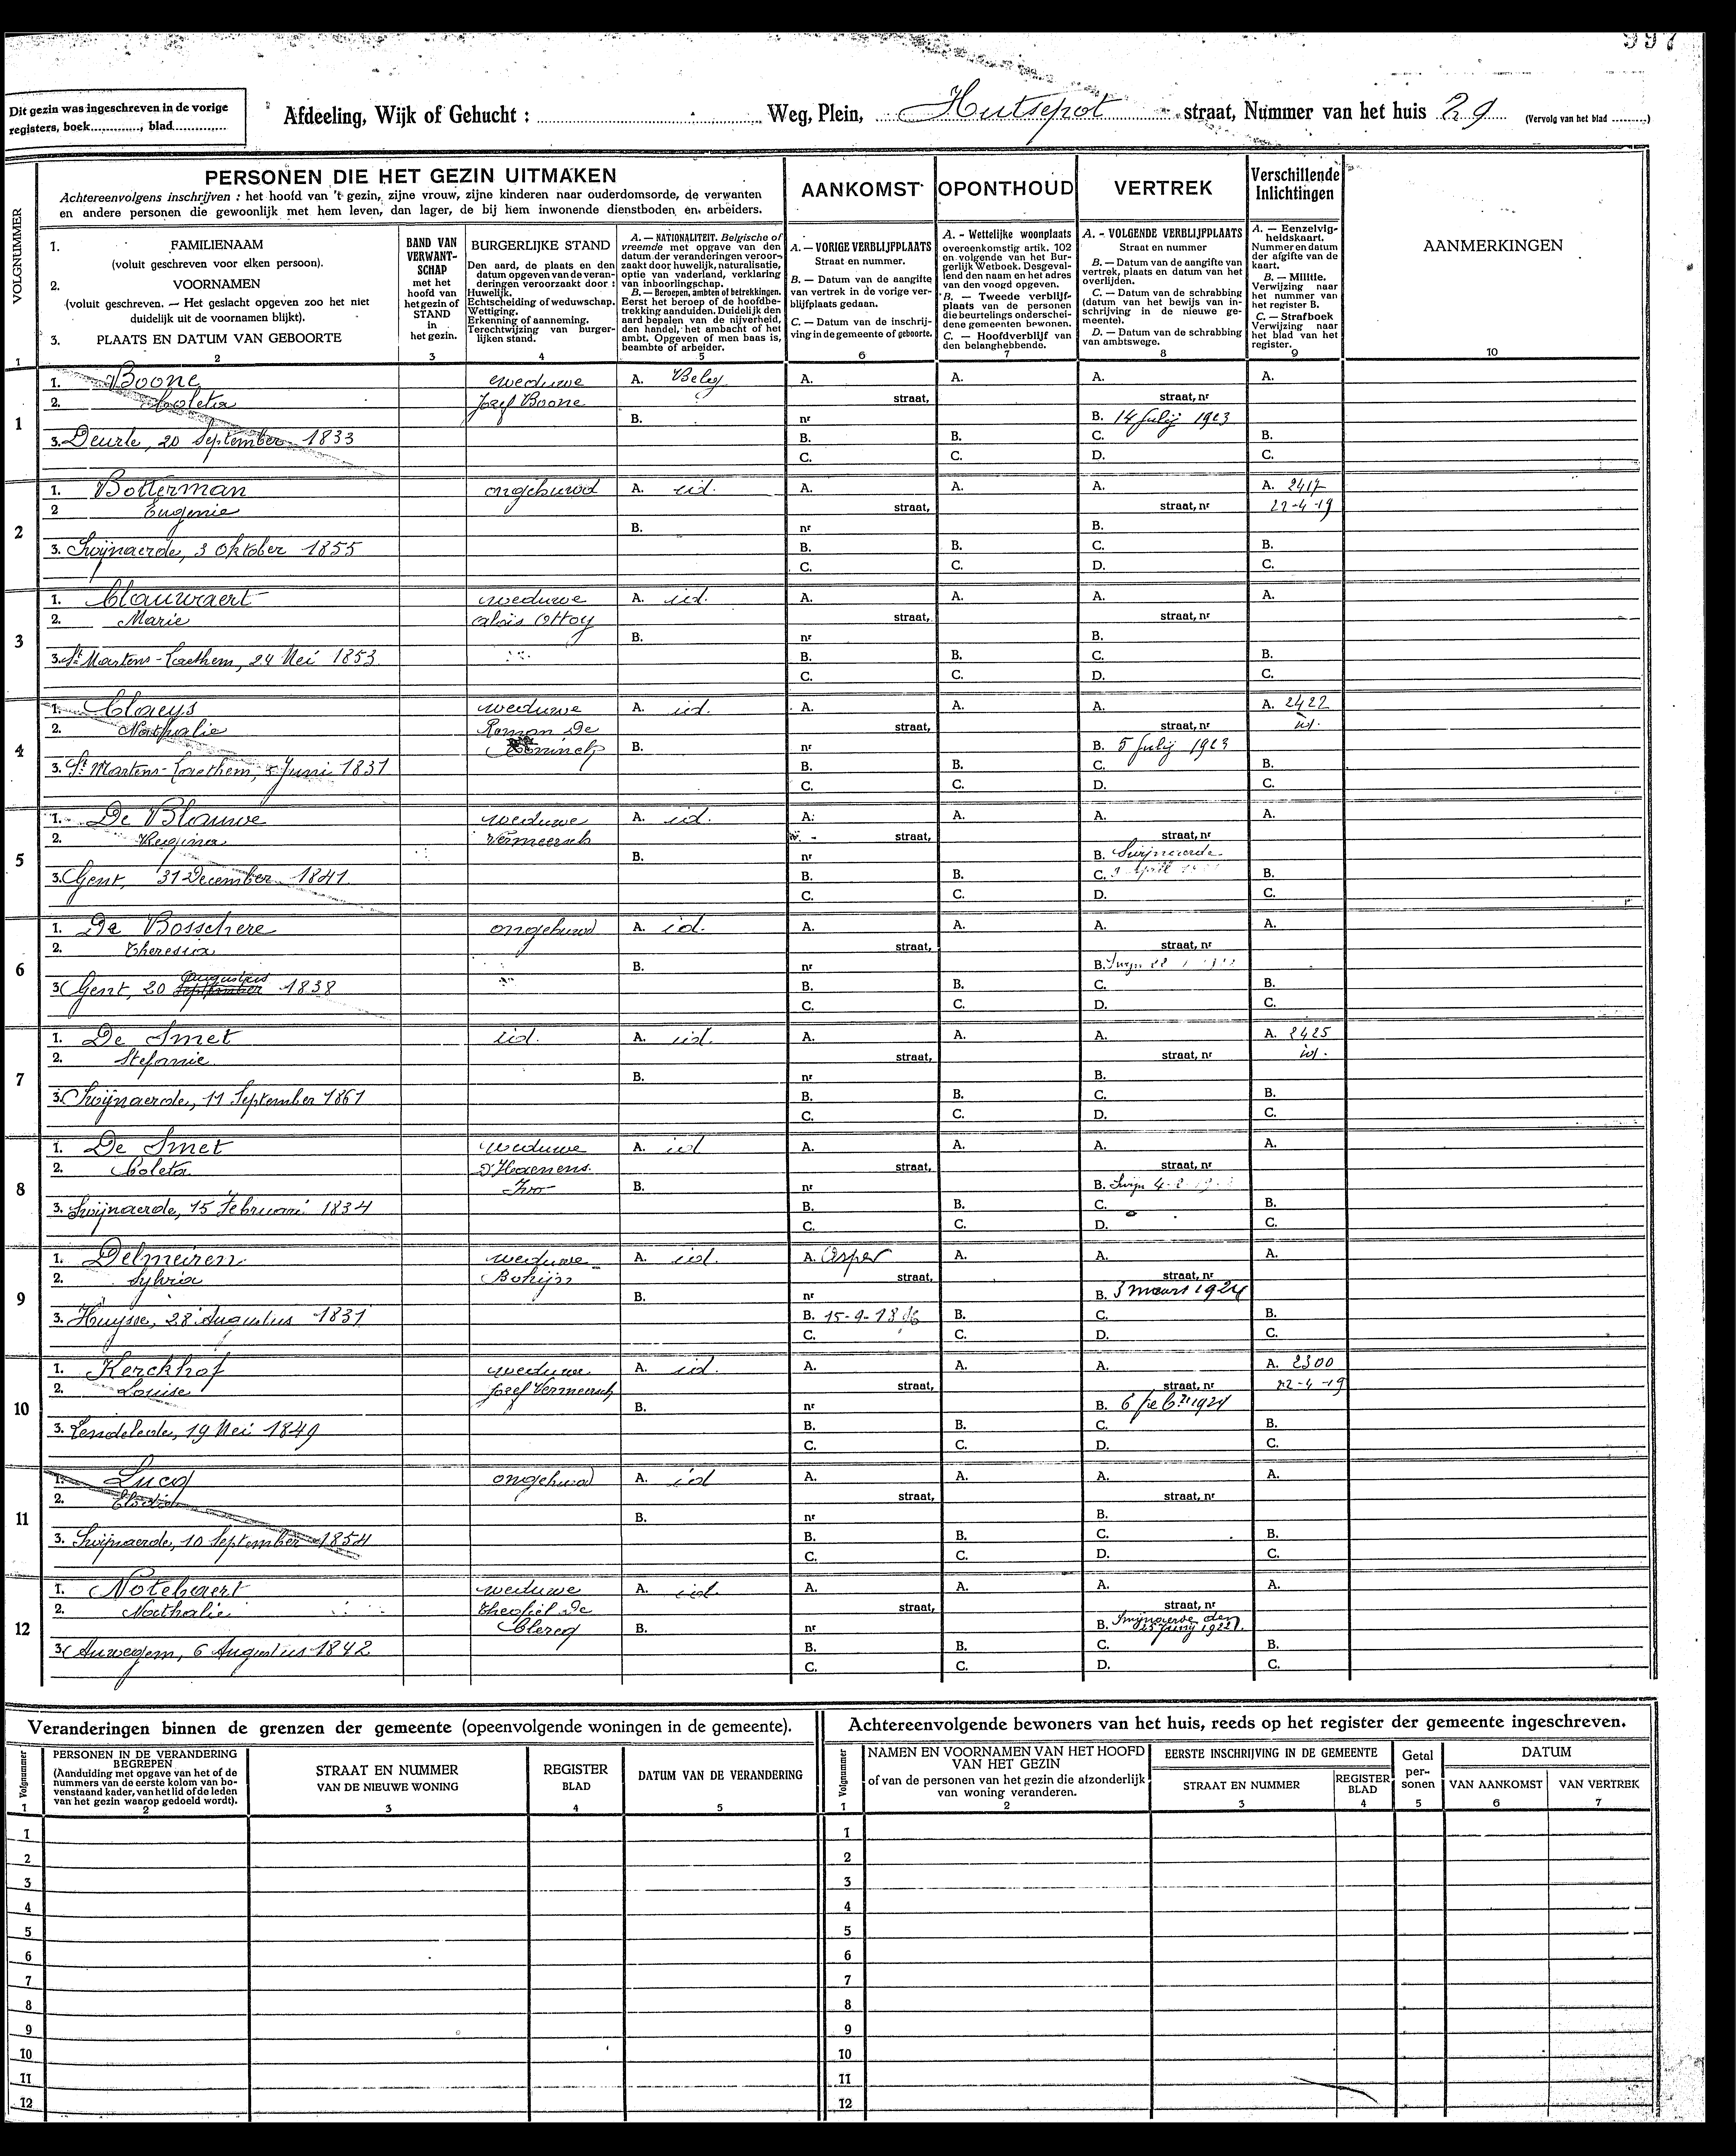 997
Dit gezin was ingeschreven in de vorige
registers, boek............, blad............
Afdeeling, Wijk of Gehucht : ............ Weg, Plein, Hutsepot straat, Nummer van het huis 29 (Vervolg van het blad ..........)
PERSONEN DIE HET GEZIN UITMAKEN
Achtereenvolgens inschrijven : het hoofd van 't gezin, zijne vrouw, zijne kinderen naar ouderdomsorde, de verwanten
en andere personen die gewoonlijk met hem leven, dan lager, de bij hem inwonende dienstboden en arbeiders.
AANKOMST
OPONTHOUD
VERTREK
Verschillende
Inlichtingen
AANMERKINGEN
VOLGNUMMER
1. FAMILIENAAM
(voluit geschreven voor elken persoon).
2. VOORNAMEN
(voluit geschreven. — Het geslacht opgeven zoo het niet
duidelijk uit de voornamen blijkt).
3. PLAATS EN DATUM VAN GEBOORTE
BAND VAN
VERWANT-
SCHAP
met het
hoofd van
het gezin of
STAND
in
het gezin.
BURGERLIJKE STAND
Den aard, de plaats en den
datum opgeven van de veran-
deringen veroorzaakt door :
Huwelijk.
Echtscheiding of weduwschap.
Wettiging.
Erkenning of aanneming.
Terechtwijzing van burger-
lijken stand.
A. — NATIONALITEIT. Belgische of
vreemde met opgave van den
datum der veranderingen veroor-
zaakt door huwelijk, naturalisatie,
optie van vaderland, verklaring
van inboorlingschap.
B. — Beroepen, ambten of betrekkingen.
Eerst het beroep of de hoofdbe-
trekking aanduiden. Duidelijk den
aard bepalen van de nijverheid,
den handel, het ambacht of het
ambt. Opgeven of men baas is,
beambte of arbeider.
A. — VORIGE VERBLIJFPLAATS
Straat en nummer.
B. — Datum van de aangifte
van vertrek in de vorige ver-
blijfplaats gedaan.
C. — Datum van de inschrij-
ving in de gemeente of geboorte.
A. - Wettelijke woonplaats
overeenkomstig artik. 102
en volgende van het Bur-
gerlijk Wetboek. Desgeval-
lend den naam en het adres
van den voogd opgeven.
B. — Tweede verblijf-
plaats van de personen
die beurtelings onderschei-
dene gemeenten bewonen.
C. — Hoofdverblijf van
den belanghebbende.
A. - VOLGENDE VERBLIJFPLAATS
Straat en nummer
B. — Datum van aangifte van
vertrek, plaats en datum van het
overlijden.
C. — Datum van de schrabbing
(datum van het bewijs van in-
schrijving in de nieuwe ge-
meente).
D. — Datum van de schrabbing
van ambtswege.
A. — Eenzelvig-
heidskaart.
Nummer en datum
der afgifte van de
kaart.
B. — Militie.
Verwijzing naar
het nummer van
het register B.
C. — Strafboek
Verwijzing naar
het blad van het
register.
1 2 3 4 5 6 7 8 9 10
1. Boone weduwe A. Belg A. A. A. A.
2. Coleta Jozef Boone straat, straat, nr
1 B. nr B. 14 Julij 1923
3. Deurle, 20 September 1833 B. B. C. B.
C. C. D. C.
1. Botterman ongehuwd A. id. A. A. A. A. 2417
2 Eugenie straat, straat, nr 22-4-19
2 B. nr B.
3. Swijnaerde, 3 Oktober 1855 B. B. C. B.
C. C. D. C.
1. Clauwaert weduwe A. id. A. A. A. A.
2. Marie Alois Ottoy straat, straat, nr
3 B. nr B.
3. St Martens-Laethem, 24 Mei 1853 B. B. C. B.
C. C. D. C.
1. Claeys weduwe A. id. A. A. A. A. 2422
2. Nathalie Roman De straat, straat, nr id.
4 Koninck B. nr B. 5 Julij 1923
3. St Martens-Laethem, Juni 1831 B. B. C. B.
C. C. D. C.
1. De Blauwe weduwe A. id. A. A. A. A.
2. Regina Vermeersch straat, straat, nr
5 B. nr B. Swijnaerde
3. Gent, 31 December 1841 B. B. C. April B.
C. C. D. C.
1. De Bosschere ongehuwd A. id. A. A. A. A.
2. Theresia straat, straat, nr
6 B. nr B. Swijn
Augustus
3 Gent, 20 September 1838 B. B. C. B.
C. C. D. C.
1. De Smet id. A. id. A. A. A. A. 2425
2. Stefanie straat, straat, nr id.
7 B. nr B.
3. Swijnaerde, 11 September 1861 B. B. C. B.
C. C. D. C.
1. De Smet weduwe A. id A. A. A. A.
2. Coleta D'Haenens straat, straat, nr
8 Ivo B. nr B. Swijn
3. Swijnaerde, 15 Februari 1834 B. B. C. B.
C. C. D. C.
1. Delmeiren weduwe A. id. A. Asper A. A. A.
2. Sylvia Bohijn straat, straat, nr
9 B. nr B. 3 maart 1924
3. Huysse, 28 Augustus 1831 B. 15-9- B. C. B.
C. C. D. C.
1. Kerckhof weduwe A. id. A. A. A. A. 2300
2. Louise Jozef Vermeersch straat, straat, nr 22-4-19
10 B. nr B. 6 feb.ri 1924
3. Lendelede, 19 Mei 1849 B. B. C. B.
C. C. D. C.
1. Lucq ongehuwd A. id A. A. A. A.
2. Elodie straat, straat, nr
11 B. nr B.
3. Swijnaerde, 10 September 1854 B. B. C. B.
C. C. D. C.
1. Notebaert weduwe A. id. A. A. A. A.
2. Nathalie Theofiel De straat, straat, nr
12 Clercq B. nr B. Swijnaerde den
25 Juny 1922.
3 Auwegem, 6 Augustus 1842 B. B. C. B.
C. C. D. C.
Veranderingen binnen de grenzen der gemeente (opeenvolgende woningen in de gemeente).
Volgnummer
PERSONEN IN DE VERANDERING
BEGREPEN
(Aanduiding met opgave van het of de
nummers van de eerste kolom van bo-
venstaand kader, van het lid of de leden
van het gezin waarop gedoeld wordt).
STRAAT EN NUMMER
VAN DE NIEUWE WONING
REGISTER
BLAD
DATUM VAN DE VERANDERING
1 2 3 4 5
1
2
3
4
5
6
7
8
9
10
11
12
Achtereenvolgende bewoners van het huis, reeds op het register der gemeente ingeschreven.
Volgnummer
NAMEN EN VOORNAMEN VAN HET HOOFD
VAN HET GEZIN
of van de personen van het gezin die afzonderlijk
van woning veranderen.
EERSTE INSCHRIJVING IN DE GEMEENTE
STRAAT EN NUMMER
REGISTER
BLAD
Getal
per-
sonen
DATUM
VAN AANKOMST
VAN VERTREK
1 2 3 4 5 6 7
1
2
3
4
5
6
7
8
9
10
11
12